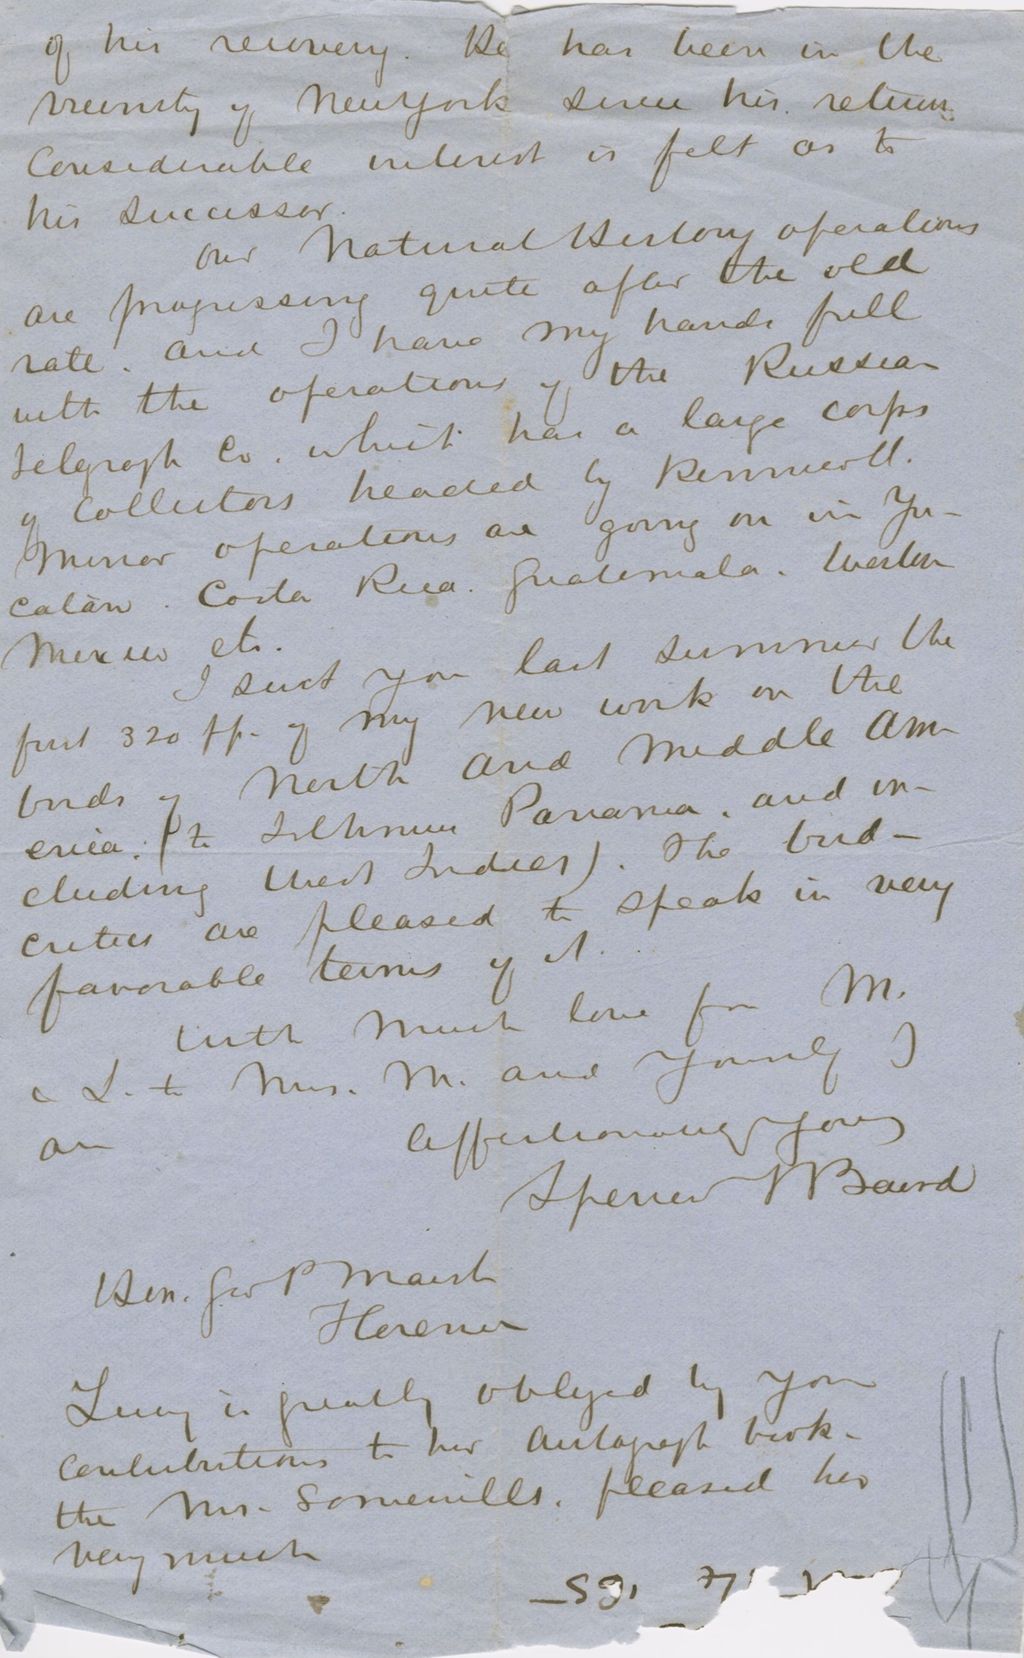 of his recovery. He has been in the
vicinity of New York since his return.
Considerable interest is felt as to
his successor.
Our Natural History operations
are progressing quite after the old
rate. and I have my hands full
with the operations of the Russian
Telegraph Co. which has a large corps
of Collectors headed by Kennicott.
Minor operations are going on in Yu-
catan. Costa Rica. Guatemala. Western
Mexico etc.
I sent you last summer the
first 320 pp. of my new work on the
birds of North and Middle Am-
erica. (to Isthmus Panama. and in-
cluding West Indies). The bird-
critics are pleased to speak in very
favorable terms of it.
With much love from M.
& L. to Mrs. M. and yourself I
am Affectionately Yours
Spencer F Baird
Hon. Geo P Marsh
Florence
Lucy is greatly obliged by your
contributions to her autograph book.
the Mrs. Somervills. pleased her
very much